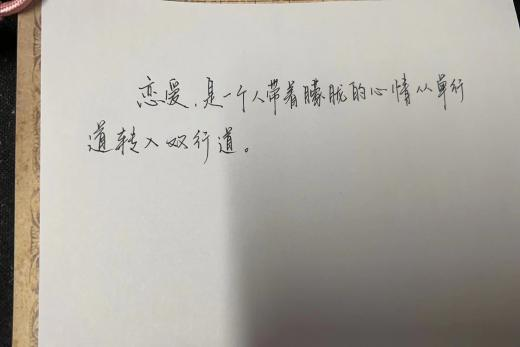 恋爱，是一个人带着朦胧的心情从单行
道转入双行道。